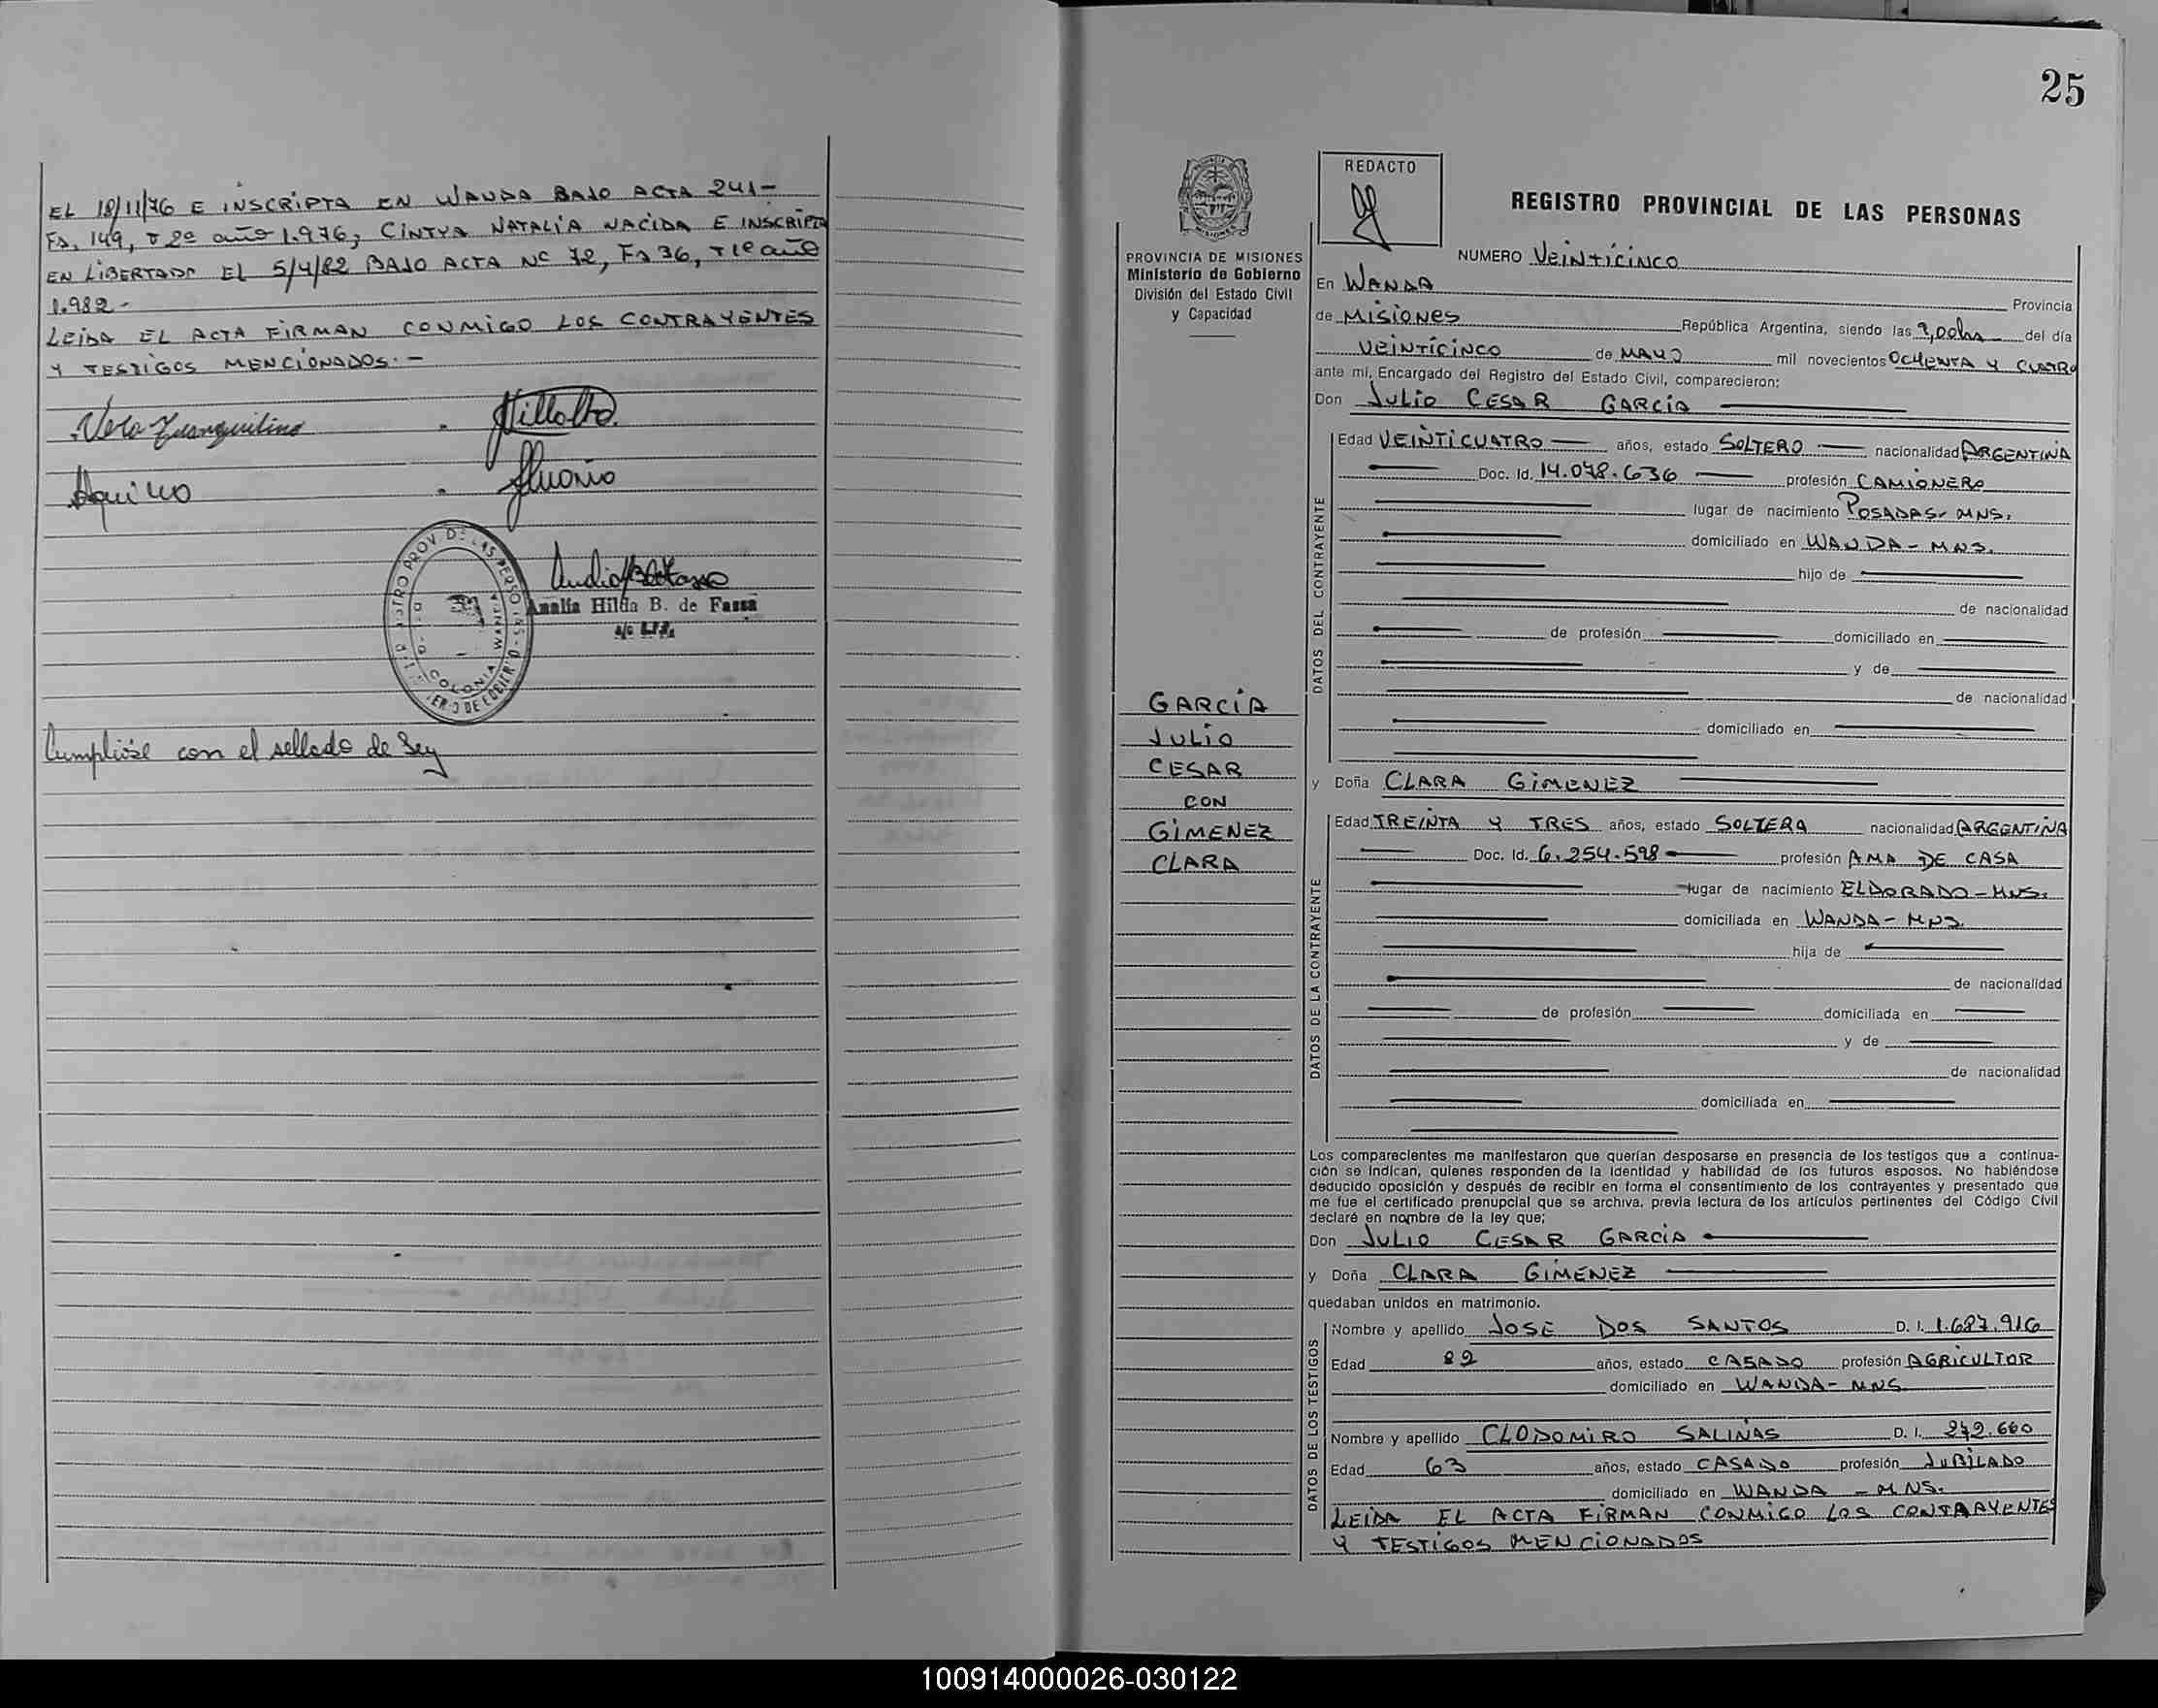 EL 18/11/76 E INSCRIPTA EN WANDA BAJO ACTA 241-
Fs. 149, T 2º año 1.976, CINTYA NATALIA NACIDA E INSCRIPTA
EN LIBERTADOR EL 5/4/82 BAJO ACTA Nº 72, Fs 36, T 1º año
1.982-
LEIDA EL ACTA FIRMAN CONMIGO LOS CONTRAYENTES
Y TESTIGOS MENCIONADOS.-
Vera Tranquilino
Villalba
Aquino
COLONIA WANDA
Analia Hilda B. de Fassa
Cumplióse con el sellado de Ley
25
PROVINCIA DE MISIONES
Ministerio de Gobierno
División del Estado Civil
y Capacidad
GARCÍA
JULIO
CESAR
CON
GIMENEZ
CLARA
REDACTO
REGISTRO PROVINCIAL DE LAS PERSONAS
NUMERO VEINTICINCO
En WANDA Provincia
de MISIONES República Argentina, siendo las 9,00hs del día
VEINTICINCO de MAYO mil novecientos OCHENTA Y CUATRO
ante mí, Encargado del Registro del Estado Civil, comparecieron:
Don JULIO CESAR GARCÍA
DATOS DEL CONTRAYENTE
Edad VEINTICUATRO años, estado SOLTERO nacionalidad ARGENTINA
Doc. Id. 14.078.636 profesión CAMIONERO
lugar de nacimiento POSADAS- MNS.
domiciliado en WANDA- MNS.
hijo de
de nacionalidad
de profesión domiciliado en
y de
de nacionalidad
domiciliado en
y Doña CLARA GIMENEZ
DATOS DE LA CONTRAYENTE
Edad TREINTA Y TRES años, estado SOLTERA nacionalidad ARGENTINA
Doc. Id. 6.254.598 profesión AMA DE CASA
lugar de nacimiento ELDORADO-MNS.
domiciliada en WANDA- MNS.
hija de
de nacionalidad
de profesión domiciliada en
y de
de nacionalidad
domiciliada en
Los comparecientes me manifestaron que querían desposarse en presencia de los testigos que a continua-
ción se indican, quienes responden de la identidad y habilidad de los futuros esposos. No habiéndose
deducido oposición y después de recibir en forma el consentimiento de los contrayentes y presentado que
me fue el certificado prenupcial que se archiva, previa lectura de los artículos pertinentes del Código Civil
declaré en nombre de la ley que;
Don JULIO CESAR GARCÍA
y Doña CLARA GIMENEZ
quedaban unidos en matrimonio.
DATOS DE LOS TESTIGOS
Nombre y apellido JOSE DOS SANTOS D. I. 1.687.916
Edad 82 años, estado CASADO profesión AGRICULTOR
domiciliado en WANDA- MNS
Nombre y apellido CLODOMIRO SALINAS D. I. 272.660
Edad 63 años, estado CASADO profesión JUBILADO
domiciliado en WANDA - MNS.
LEIDA EL ACTA FIRMAN CONMIGO LOS CONTRAYENTES
Y TESTIGOS MENCIONADOS
100914000026-030122